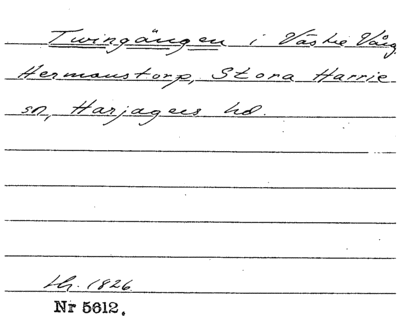 Twingången i Västra Vång
Hermanstorp, Stora Harrie
sn, Harjagers hd.
1826
Nr 5612.